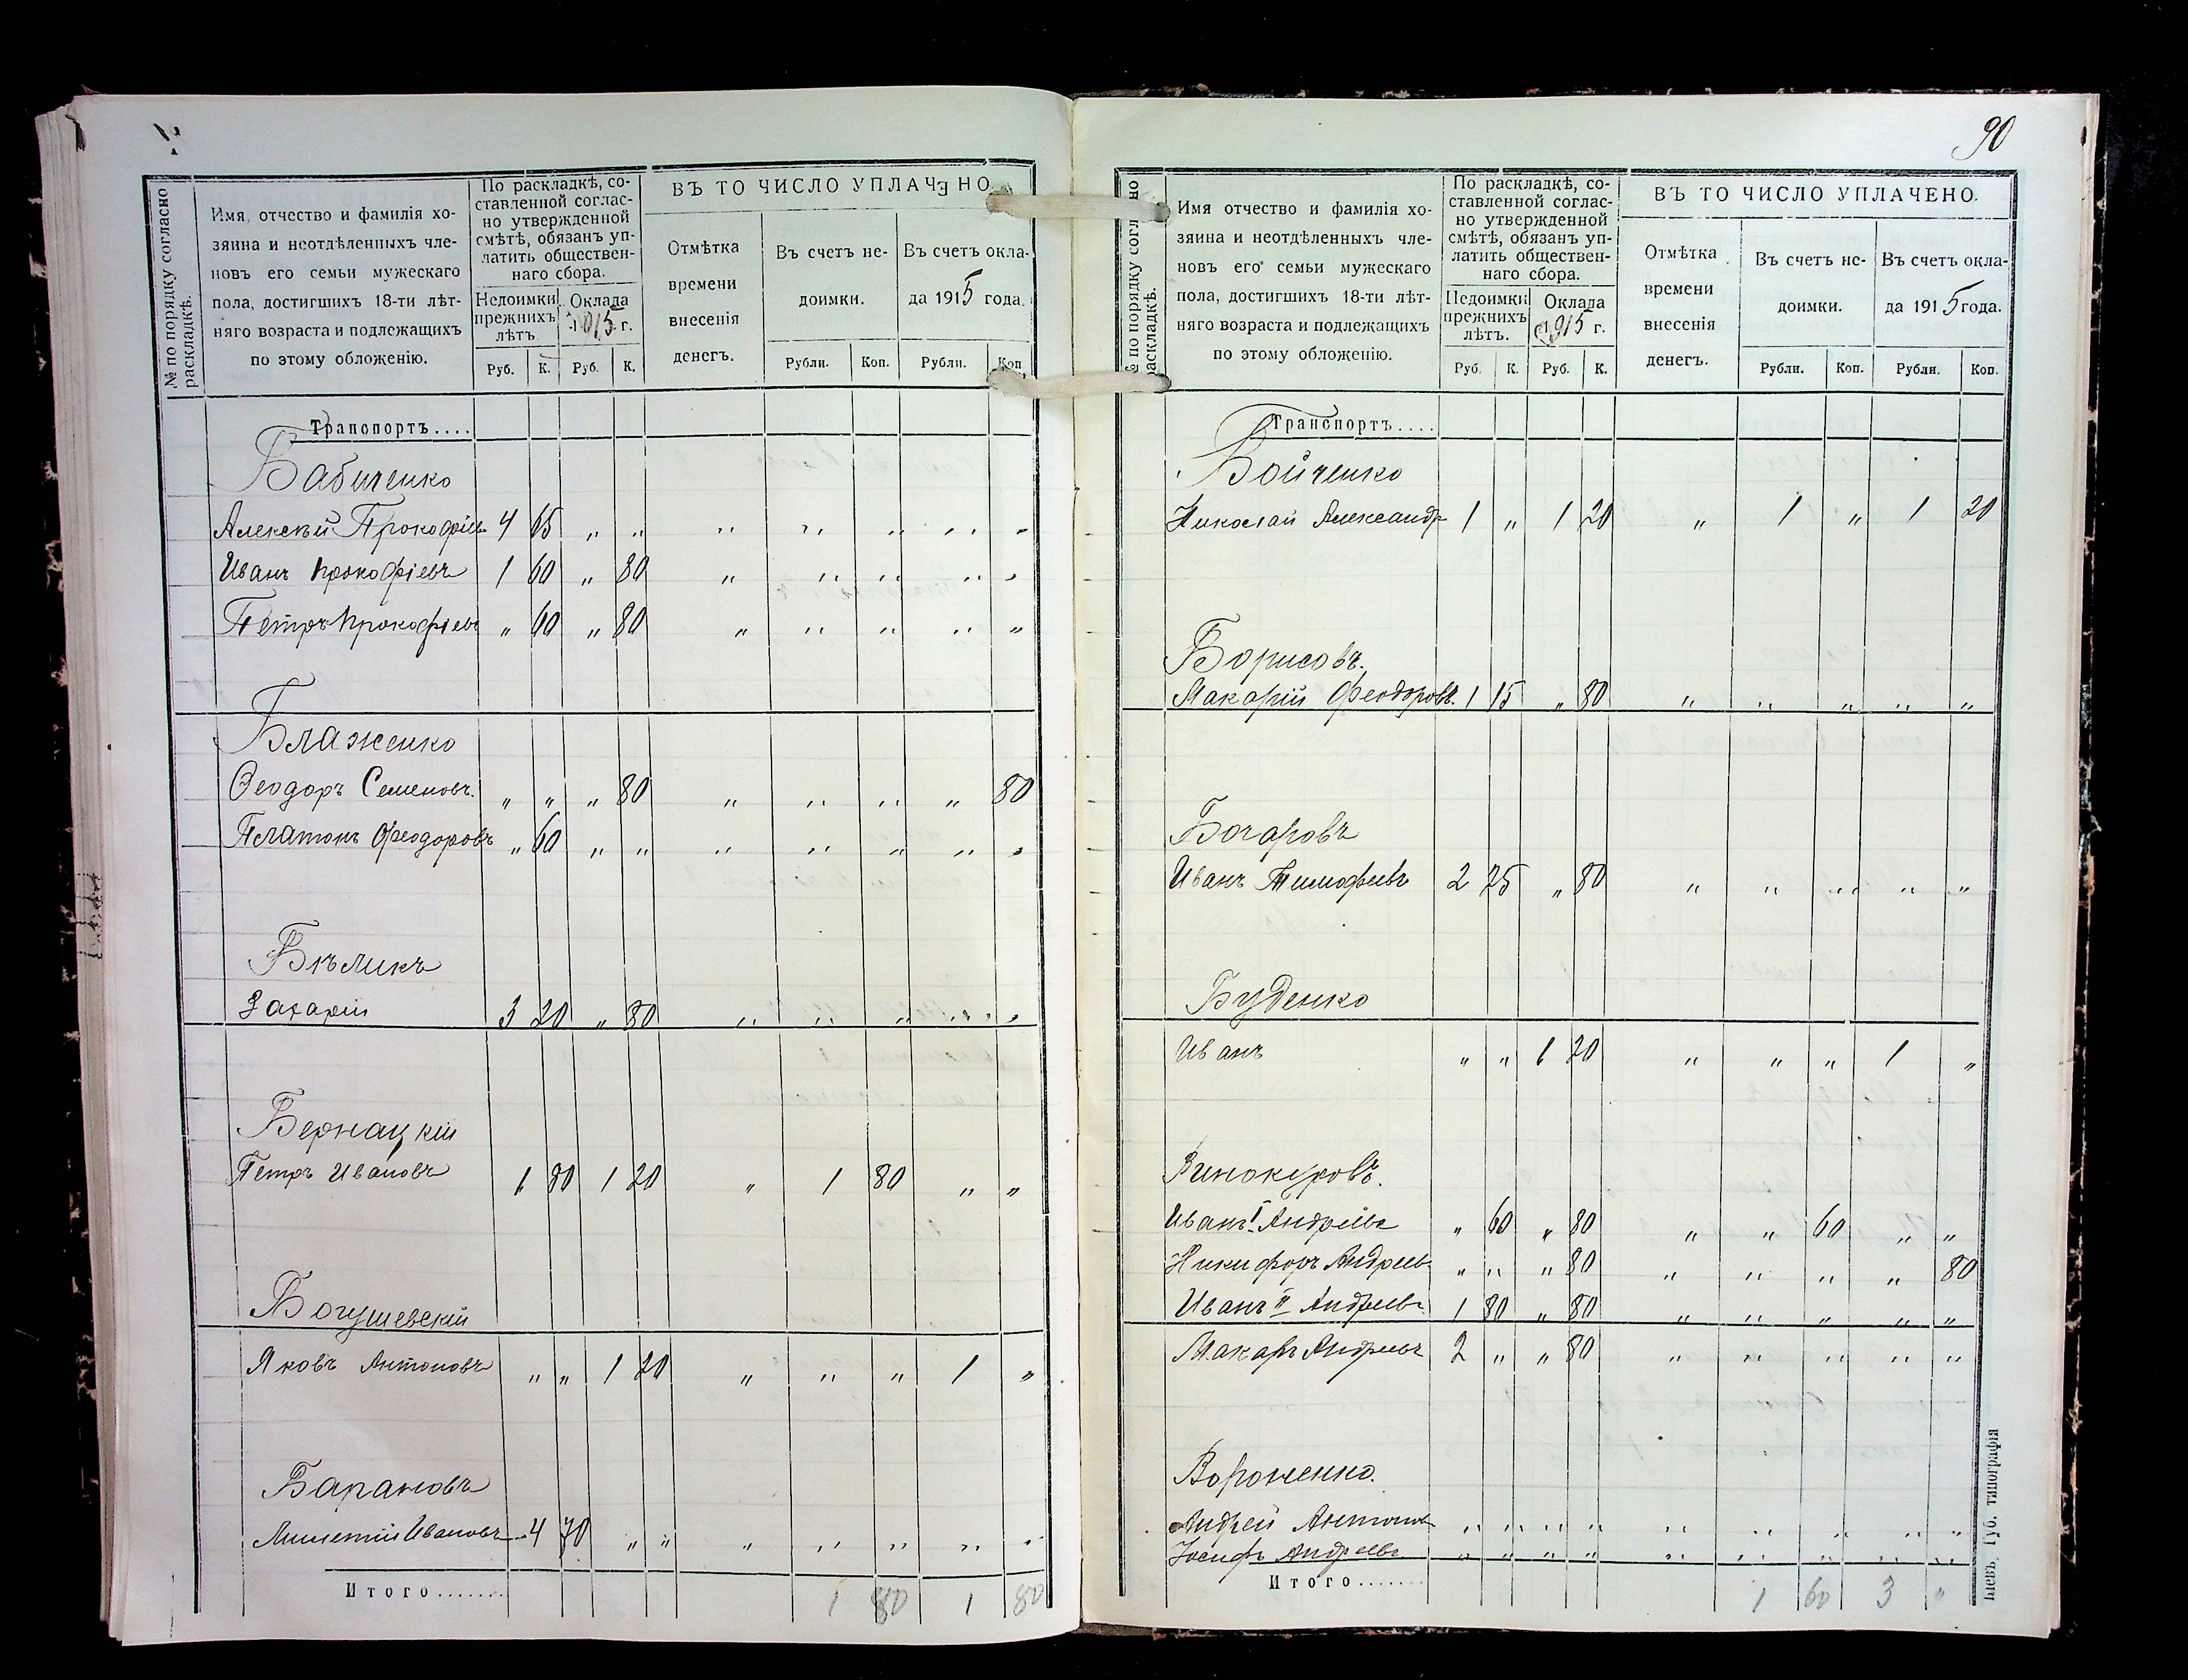 № по порядку согласно раскладкѣ.
Имя, отчество и фамилія хозяина и неотдѣленныхъ членовъ его семьи мужескаго пола, достигшихъ 18-ти лѣтняго возраста и подлежащихъ по этому обложенію.
По раскладкѣ, составленной согласно утвержденной смѣтѣ, обязанъ уплатить общественнаго сбора.
Недоимки прежнихъ лѣтъ.
Оклада 1915 г.
Руб. К. Руб. К.
ВЪ ТО ЧИСЛО УПЛАЧЕНО.
Отмѣтка времени внесенія денегъ.
Въ счетъ недоимки.
Въ счетъ оклада 1915 года.
Рубли. Коп. Рубли. Коп.
Транспортъ....
Бабиченко
Алексѣй Прокофіев 4 65 " " " " " " "
Иванъ Прокофіевъ 1 60 " 80 " " " " "
Петръ Прокофіевъ " 60 " 80 " " " " "
Блаженко
Ѳеодоръ Семеновъ. " " " 80 " " " " 80
Платонъ Феодоровъ " 60 " " " " " " "
Бѣликъ
Захарій 3 20 " 80 " " " " "
Бернацкій
Петръ Ивановъ 1 80 1 20 " 1 80 " "
Богушевскій
Яковъ Антоновъ " " 1 20 " " " 1 "
Барановъ
Ивановъ 4 70 " " " " " " "
Итого....... 1 80 1 80
90
№ по порядку согласно раскладкѣ.
Имя отчество и фамилія хозяина и неотдѣленныхъ членовъ его семьи мужескаго пола, достигшихъ 18-ти лѣтняго возраста и подлежащихъ по этому обложенію.
По раскладкѣ, составленной согласно утвержденной смѣтѣ, обязанъ уплатить общественнаго сбора.
Недоимки прежнихъ лѣтъ.
Оклада 1915 г.
Руб. К. Руб. К.
ВЪ ТО ЧИСЛО УПЛАЧЕНО.
Отмѣтка времени внесенія денегъ.
Въ счетъ недоимки.
Въ счетъ оклада 1915 года.
Рубли. Коп. Рубли. Коп.
Транспортъ....
Бойченко
Николай Александр 1 " 1 20 " 1 " 1 20
Борисовъ.
Макарій Феодоровъ. 1 15 " 80 " " " " "
Бочаровъ
Иванъ Тимофеевъ 2 25 " 80 " " " " "
Буденко
Иванъ " " 1 20 " " " 1 "
Винокуровъ.
Иванъ I Андреевъ " 60 " 80 " " 60 " "
Никифоръ Андреев " " " 80 " " " " 80
Иванъ II Андреевъ 1 80 " 80 " " " " "
Макаръ Андреевъ 2 " " 80 " " " " "
Вороненко.
Андрей Антонов " " " " " " " " "
Іосифъ Андреевъ " " " " " " " " "
Итого....... 1 60 3 "
Кіевъ. Губ. типографія